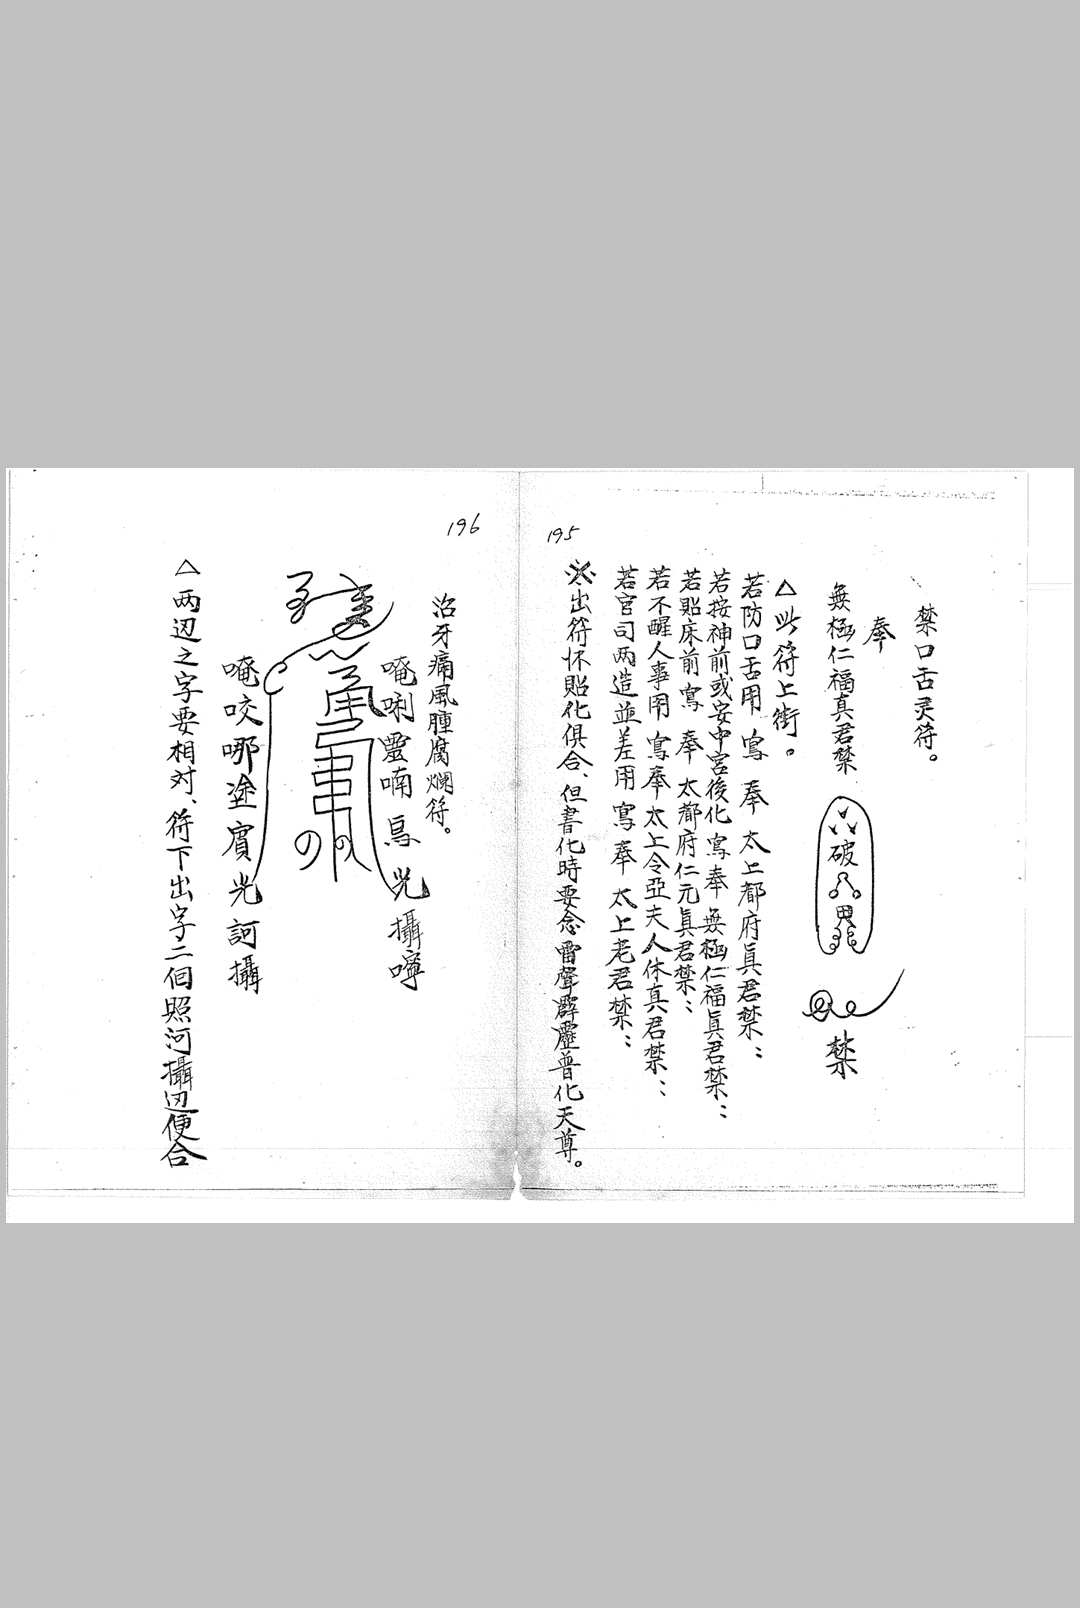 195
禁口舌灵符。
奉
無極仁福真君禁
破
禁
△此符上街。
若防口舌用 寫 奉 太上都府眞君禁:
若按神前或安中宮後化 寫奉 無極仁福眞君禁:
若貼床前寫 奉 太都府仁元眞君禁:
若不醒人事用 寫奉太上令亞夫人休真君禁:
若官司两造並差用 寫 奉 太上老君禁:
※出符怀貼化俱合、但書化時要念雷聲霹靂普化天尊。
196
治牙痛風腫腐爛符。
唵唎靈喃 攝嚀
唵咬哪塗賓 訶攝
△两边之字要相对、符下出字二個照河攝边便合